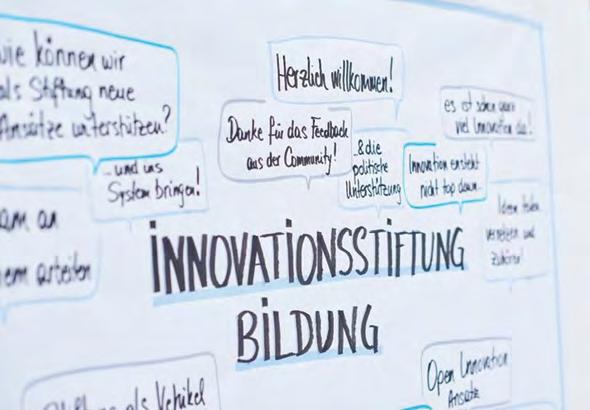 wie können wir
als Stiftung neue
Ansätze unterstützen?
...und ins
System bringen!
Herzlich willkommen!
Danke für das Feedback
aus der Community!
..& die
politische
Unterstützung
es ist schon
viel Innovation da!
Innovation entsteht
nicht top down.
Ideen teilen
vernetzen und
am an
arbeiten
INNOVATIONSSTIFTUNG
BILDUNG
als Vehikel
Open Innovation
Ansätze